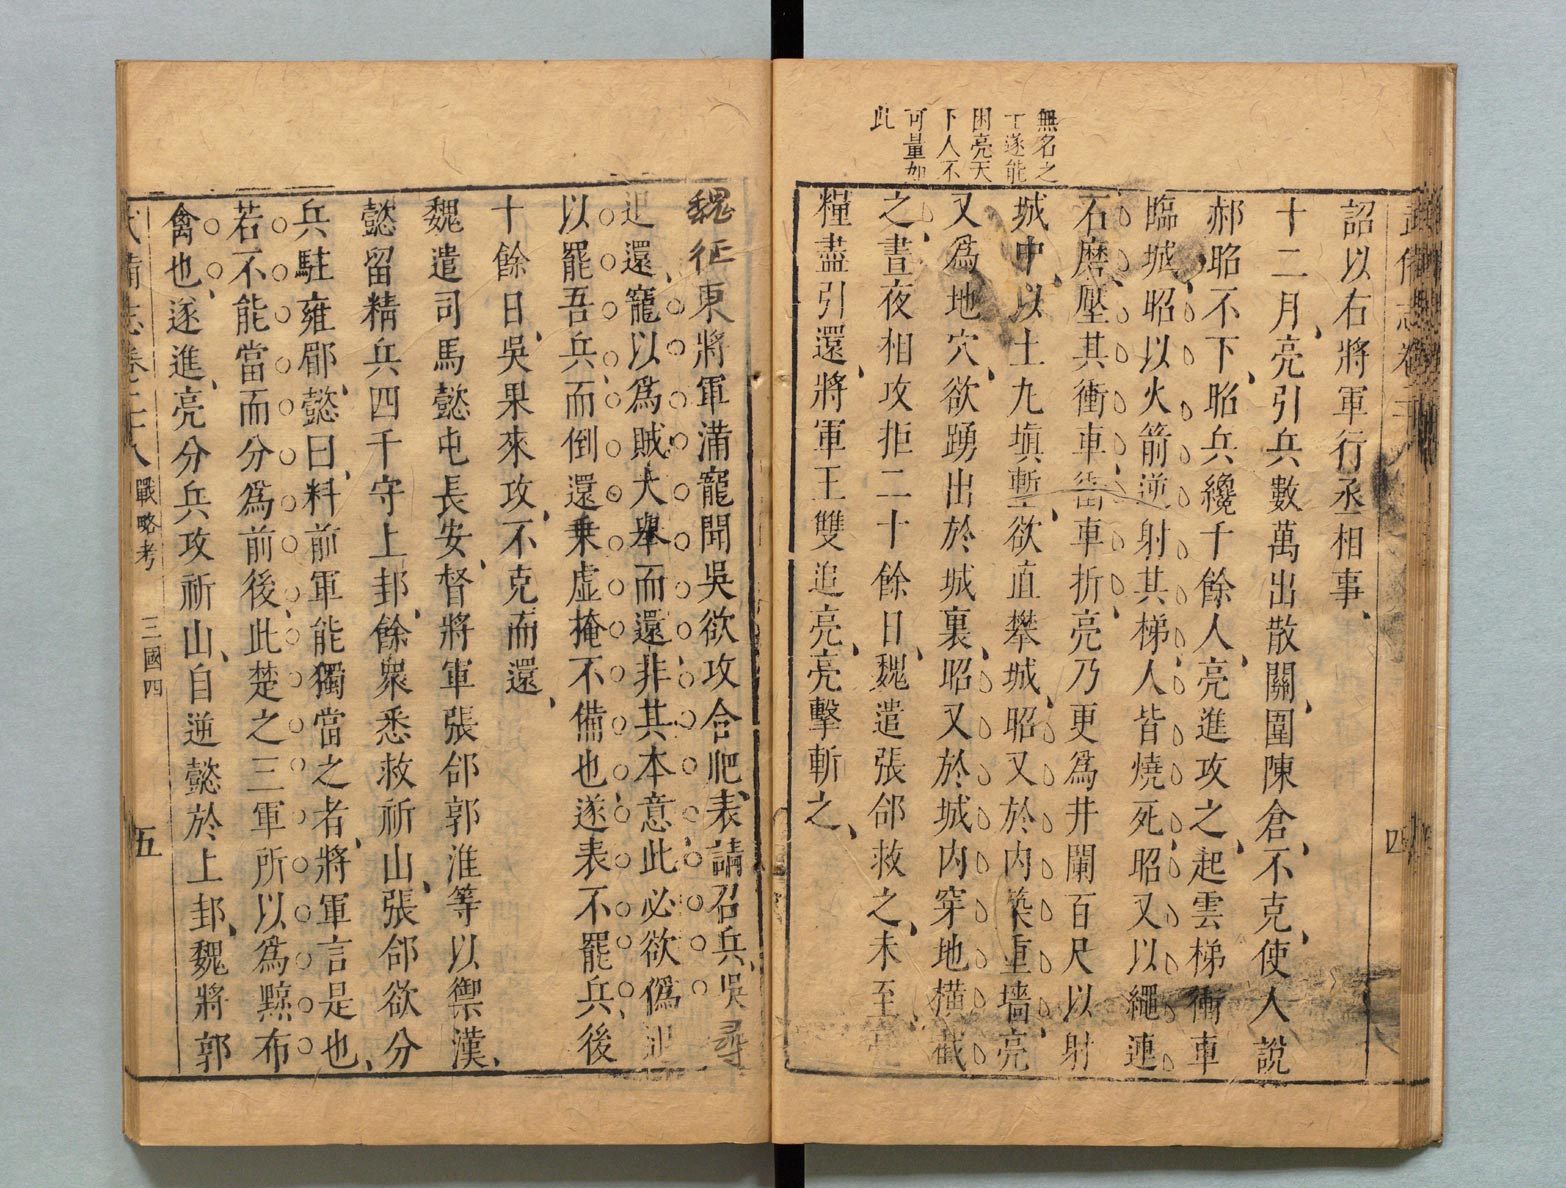 無名之
下遂能
困亮天
下人不
可量如
此
詔以右將軍行丞相事、
十二月、亮引兵數萬出散關、圍陳倉、不克、使人說
郝昭不下、昭兵纔千餘人、亮進攻之、起雲梯衝車
臨城、昭以火箭逆射其梯、人皆燒死、昭又以繩連
石磨壓其衝車、衝車折、亮乃更爲井闌百尺以射
城中、以土丸塡塹、欲直攀城、昭又於內築重墻、亮
又爲地穴、欲踴出於城裏、昭又於城內穿地橫截
之、晝夜相攻拒二十餘日、魏遣張郃救之、未至、
糧盡引還、將軍王雙追亮、亮擊斬之、
魏征東將軍滿寵聞吳欲攻合肥、表請召兵、吳尋
退還、寵以爲賊大舉而還、非其本意、此必欲僞退
以罷吾兵、而倒還乘虛、掩不備也、遂表不罷兵、後
十餘日、吳果來攻、不克而還、
魏遣司馬懿屯長安、督將軍張郃郭淮等以禦漢、
懿留精兵四千守上邽、餘衆悉救祈山、張郃欲分
兵駐雍郿、懿曰、料前軍能獨當之者、將軍言是也、
若不能當而分爲前後、此楚之三軍所以爲黥布
禽也、遂進、亮分兵攻祈山、自逆懿於上邽、魏將郭
武備志卷二十八 戰略考 三國四 五